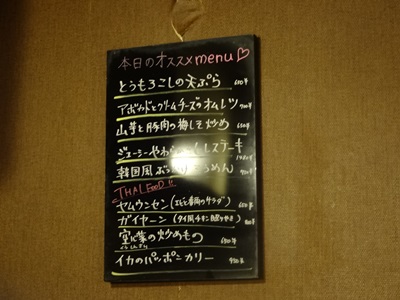 本日のオススメmenu♡
とうもろこしの天ぷら
アボカドとクリームチーズのオムレツ
山芋と豚肉の梅しそ炒め 650円
ジューシーやわらか ステーキ
韓国風ぶっ めん
THAI FOOD!!
ヤムウンセン(エビと春雨のサラダ) 650円
ガイヤーン(タイ風チキン
空心菜の炒めもの 650円
イカのパッポンカリー